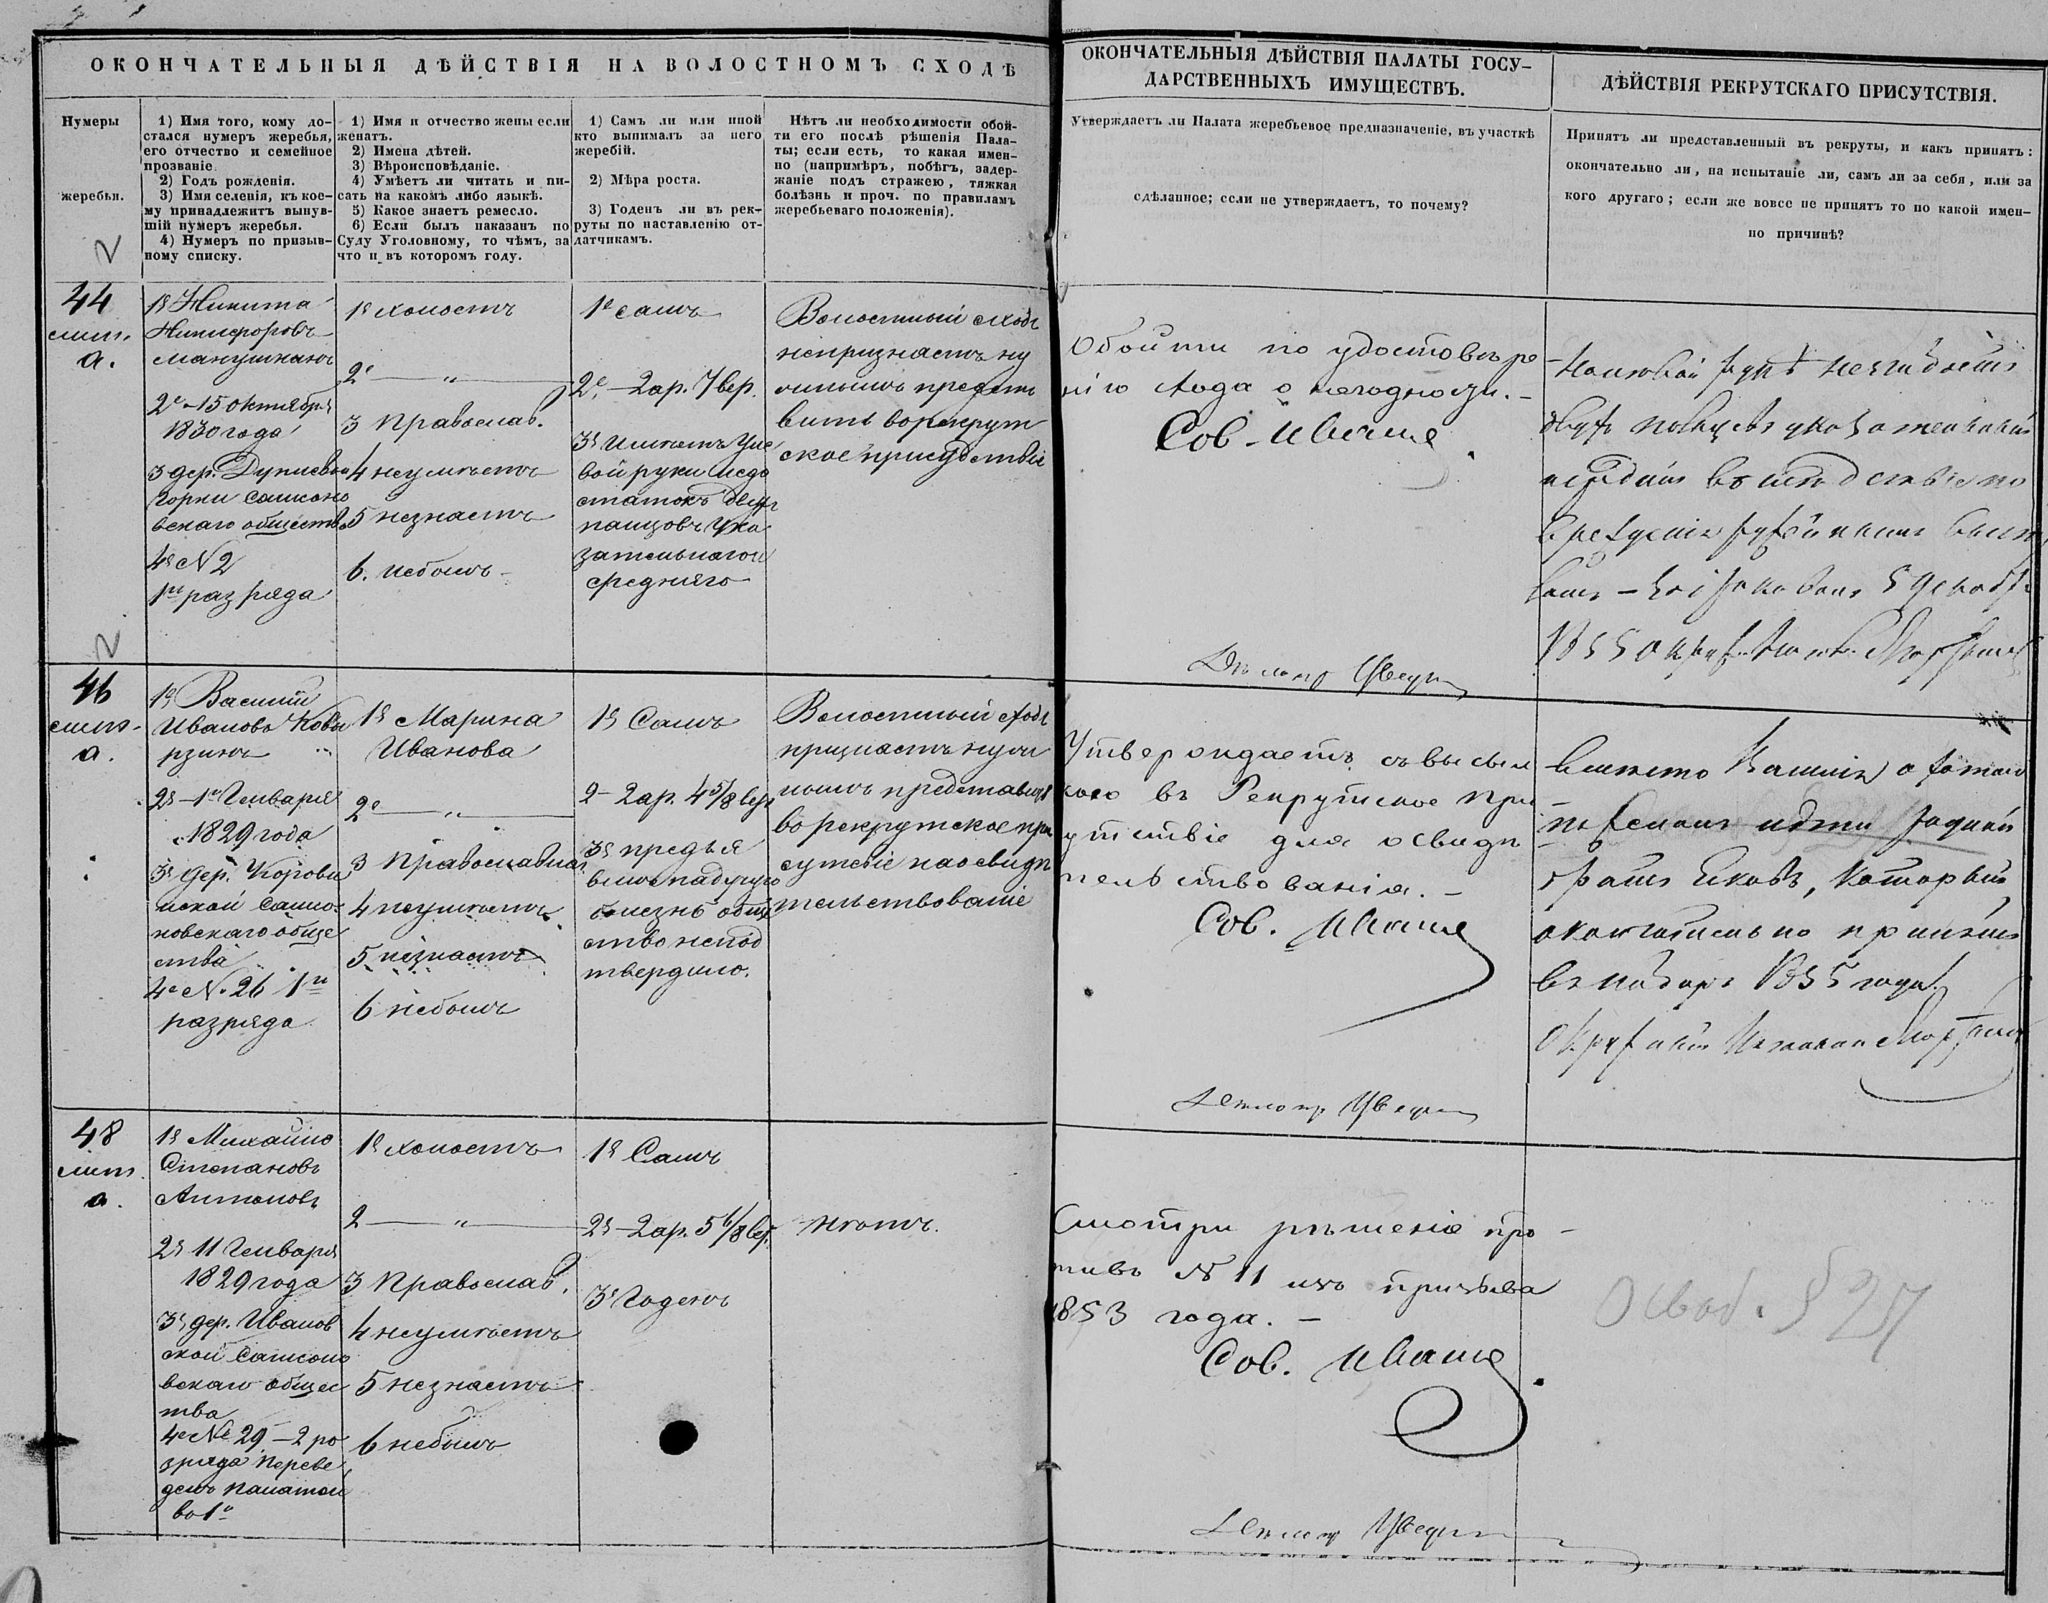 ОКОНЧАТЕЛЬНЫЯ ДѢЙСТВІЯ НА ВОЛОСТНОМЪ СХОДѢ
Нумеры
жеребьи.
1) Имя того, кому до-
стался нумеръ жеребья,
его отчество и семейное
прозваніе
2) Годъ рожденія.
3) Имя селенія, къ кое-
му принадлежитъ вынув-
шій нумеръ жеребья.
4) Нумеръ по призыв-
ному списку.
1) Имя и отчество жены если
женатъ.
2) Имена дѣтей.
3) Вѣроисповѣданіе.
4) Умѣетъ ли читать и пи-
сать на какомъ либо языкѣ.
5) Какое знаетъ ремесло.
6) Если былъ наказанъ по
Суду Уголовному, то чѣмъ, за
что и въ которомъ году.
1) Самъ ли или иной
кто вынималъ за него
жеребій.
2) Мѣра роста.
3) Годенъ ли въ рек-
руты по наставленію от-
датчикамъ.
Нѣтъ ли необходимости обой-
ти его послѣ рѣшенія Пала-
ты; если есть, то какая имен-
но (напримѣръ, побѣгъ, задер-
жаніе подъ стражею, тяжкая
болѣзнь и проч. по правиламъ
жеребьеваго положенія).
ОКОНЧАТЕЛЬНЫЯ ДѢЙСТВІЯ ПАЛАТЫ ГОСУ-
ДАРСТВЕННЫХЪ ИМУЩЕСТВЪ.
Утверждаетъ ли Палата жеребьевое предназначеніе, въ участкѣ
сдѣланное; если не утверждаетъ, то почему?
ДѢЙСТВІЯ РЕКРУТСКАГО ПРИСУТСТВІЯ.
Принятъ ли представленный въ рекруты, и какъ принятъ:
окончательно ли, на испытаніе ли, самъ ли за себя, или за
кого другаго; если же вовсе не принятъ то по какой имен-
но причинѣ?
44
лит.
а.
1е Никита
Никифоровъ
Манушкинъ
2е – 15 октября
1830 года
3 дер.
Горки Самсоно
вскаго общества
4е N 2
1го разряда
1е холостъ
2е — „ —
3 Православ.
4 неумѣетъ
5 незнаетъ
6. небылъ
1е самъ
2е – 2 ар. 7 вер.
3е имѣетъ у лѣ
вой руки недо
статокъ двухъ
пальцовъ ука
зательнаго и
средняго
Волостный сходъ
непризнаетъ ну
жнымъ предста
вить в рекрут
ское присудствіе
Обойти по удостовѣре
нію схода о негодности. –
Сов. Иваше
46
лит.
а.
1е Василій
Ивановъ Кобы
рзинъ
2е – 1го Генваря
1829 года
3е дер. Корови
нской Самсо-
новскаго обще
ства
4е № 26 1го
разряда
1е Марина
Иванова
2е — „ —
3 Православная
4 неумѣетъ
5 незнаетъ
6 небылъ
1е Самъ
2 – 2 ар. 4 5/8 вер
3е предъя
вилъ падучую
болезнь обще
ство непод
твердило.
Волостный сходъ
признаетъ нуж
нымъ представить
в рекрутское при
сутсвіе на освидѣ
тельствованіе
Утверждаетъ съ высыл
кою въ Рекрутское При
сутствіе для освидѣ
тельствованія. –
Сов. Иваше
вместо Василія
братъ Яковъ, который
окончательно принятъ
в наборъ 1855 года.
48
лит.
а.
1е Михайло
Степановъ
Антоновъ
2е 11 Генваря
1829 года
3е дер. Иванов
ской Самсоно
вскаго общес
тва
4е № 29 – 2 ра
зряда переве
денъ палатою
во 1й
1е холостъ
2 — „ —
3 Православ.
4 неумѣетъ
5 незнаетъ
6 небылъ
1е Самъ
2е – 2 ар. 5 6/8 вер.
3е Годенъ
нѣтъ.
Смотри рѣшеніе про-
тивъ № 11 изъ призыва
1853 года. –
Сов. Иваше
Освоб. § 27